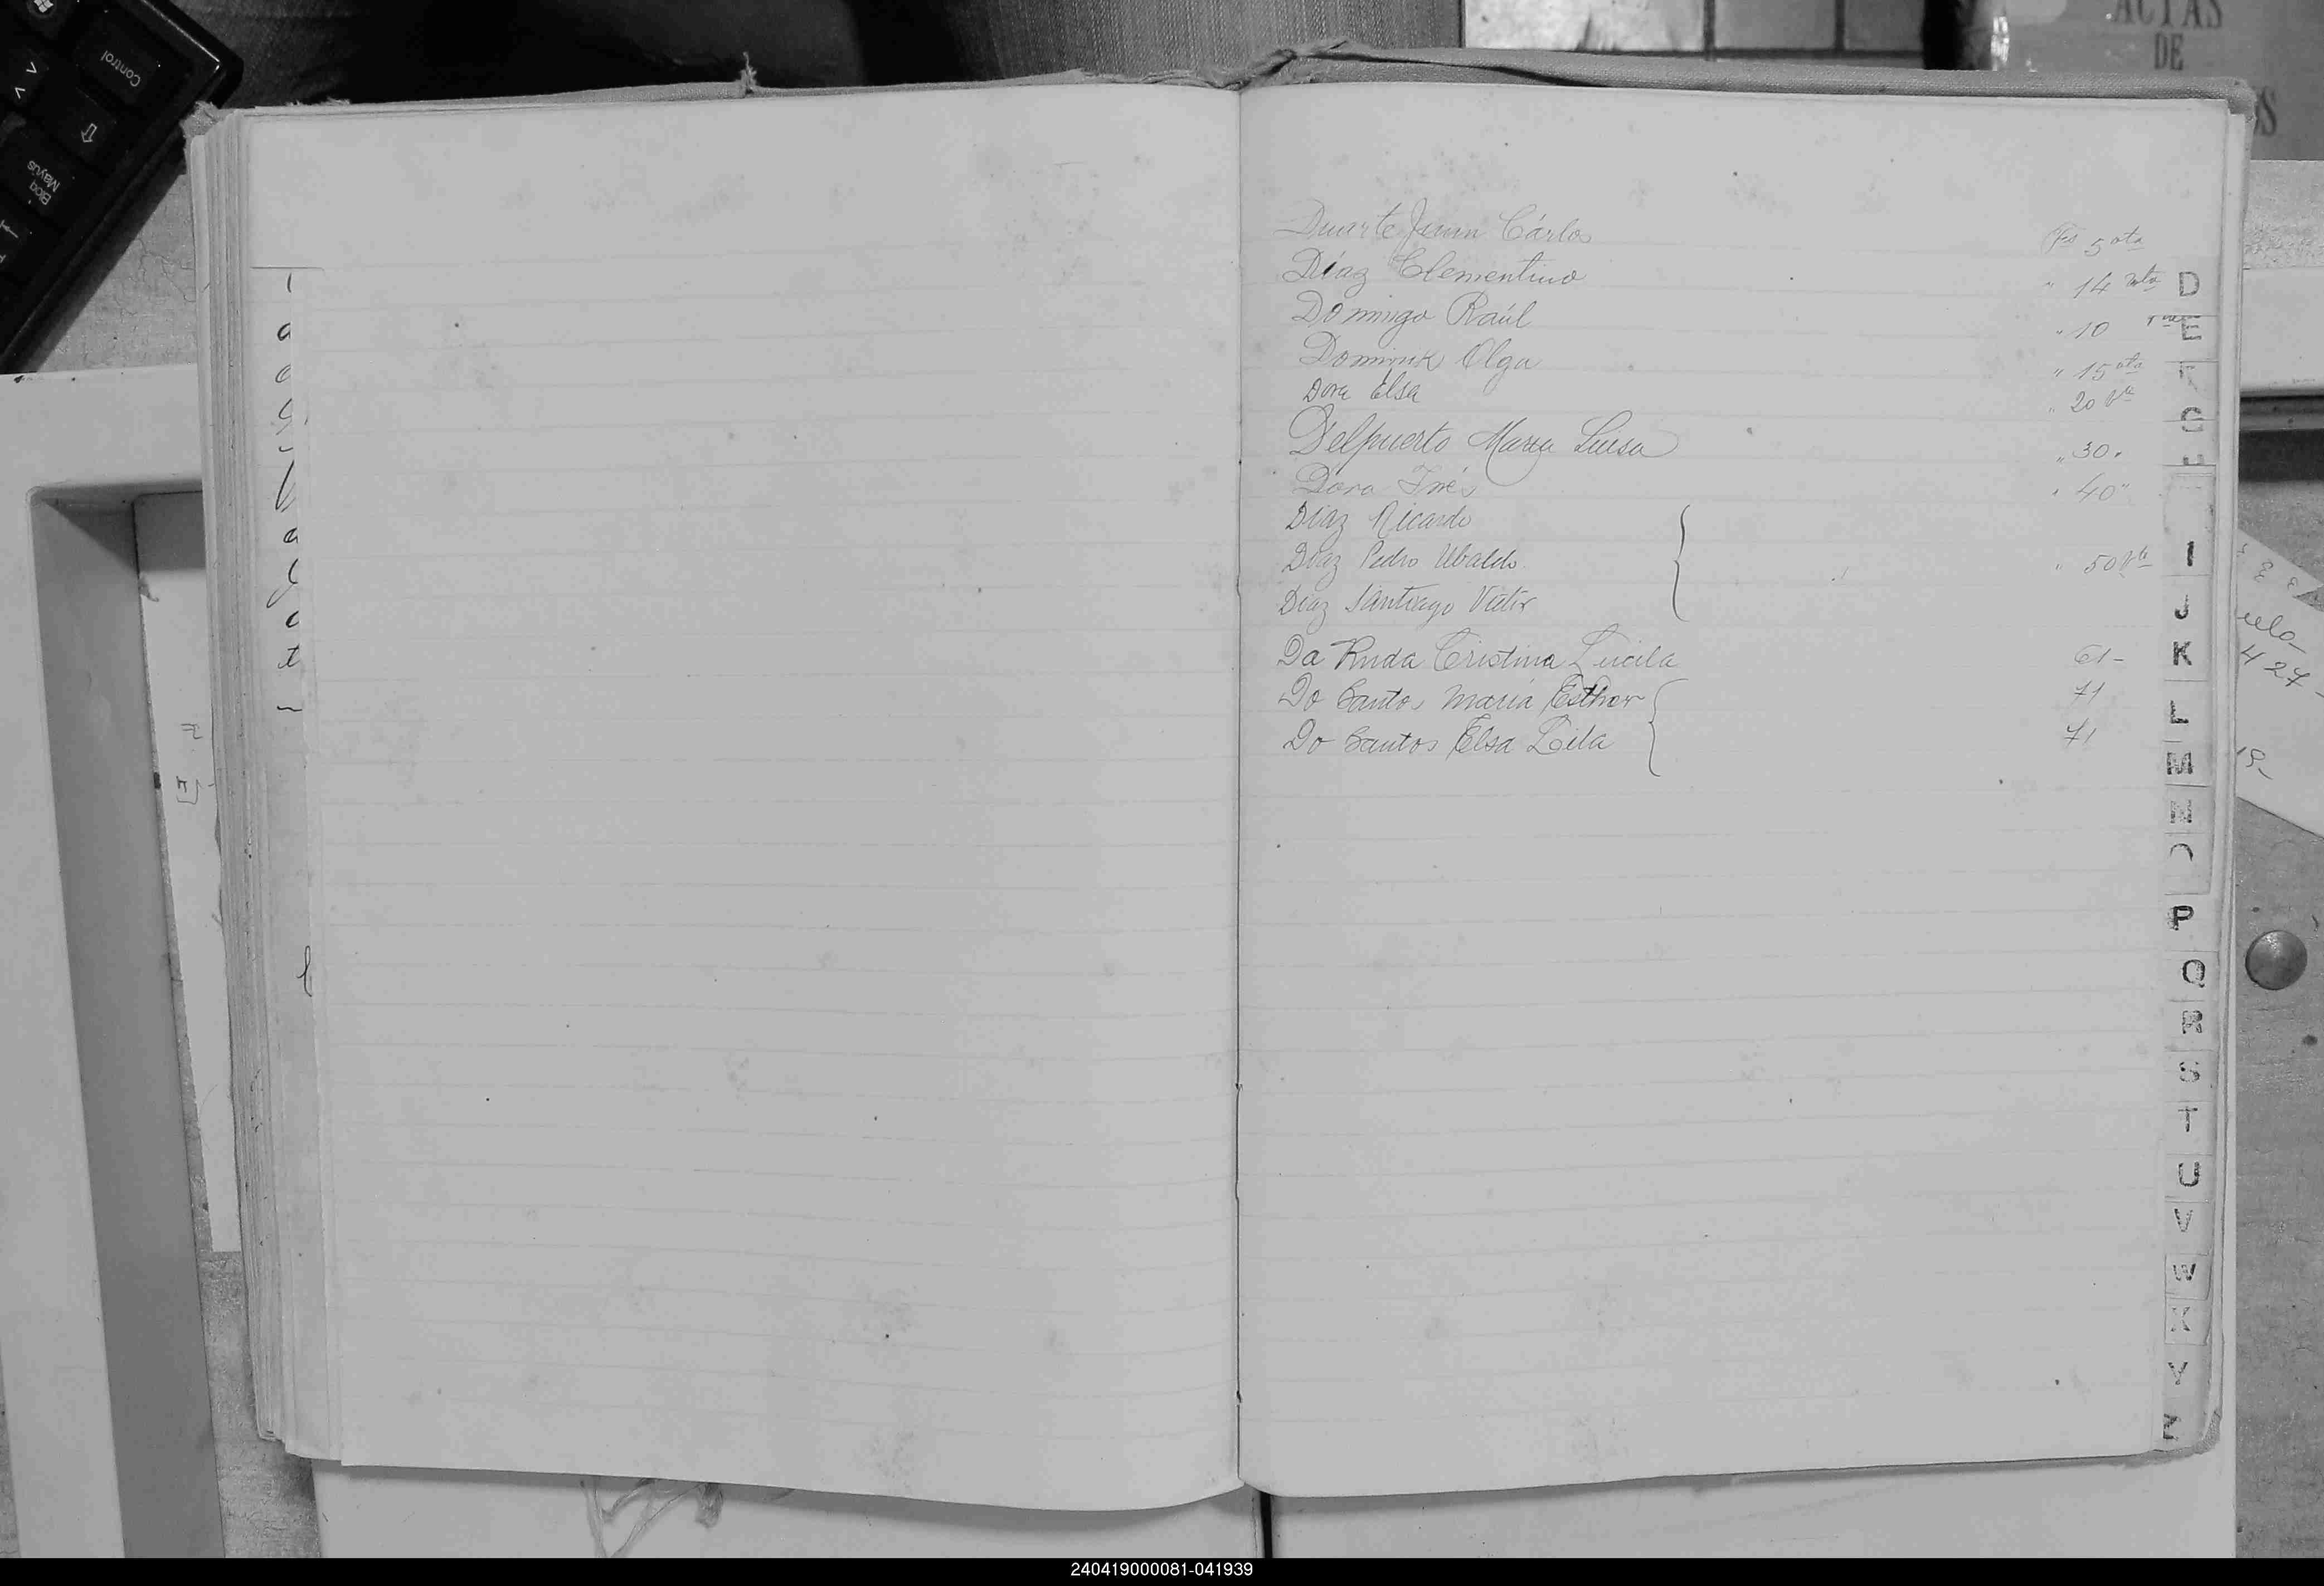 Control
Bloq
Mayús
ACTAS
DE
Duarte Juan Cárlos Fs 5 vta
Díaz Clementino " 14 vta
Domingo Raúl " 10
Dominik Olga " 15 vta
Dora Elsa " 20 Vta
Delpuerto María Luisa " 30 "
Dora Inés " 40 "
Díaz Ricardo
Díaz Pedro Ubaldo " 50 Vta
Díaz Santiago Victor
Da Ruda Cristina Lucila 61-
Do Santos María Esther 71
Do Santos Elsa Leila 71
D
E
F
G
I
J
K
L
M
N
O
P
Q
R
S
T
U
V
W
X
Y
Z
427-
240419000081-041939